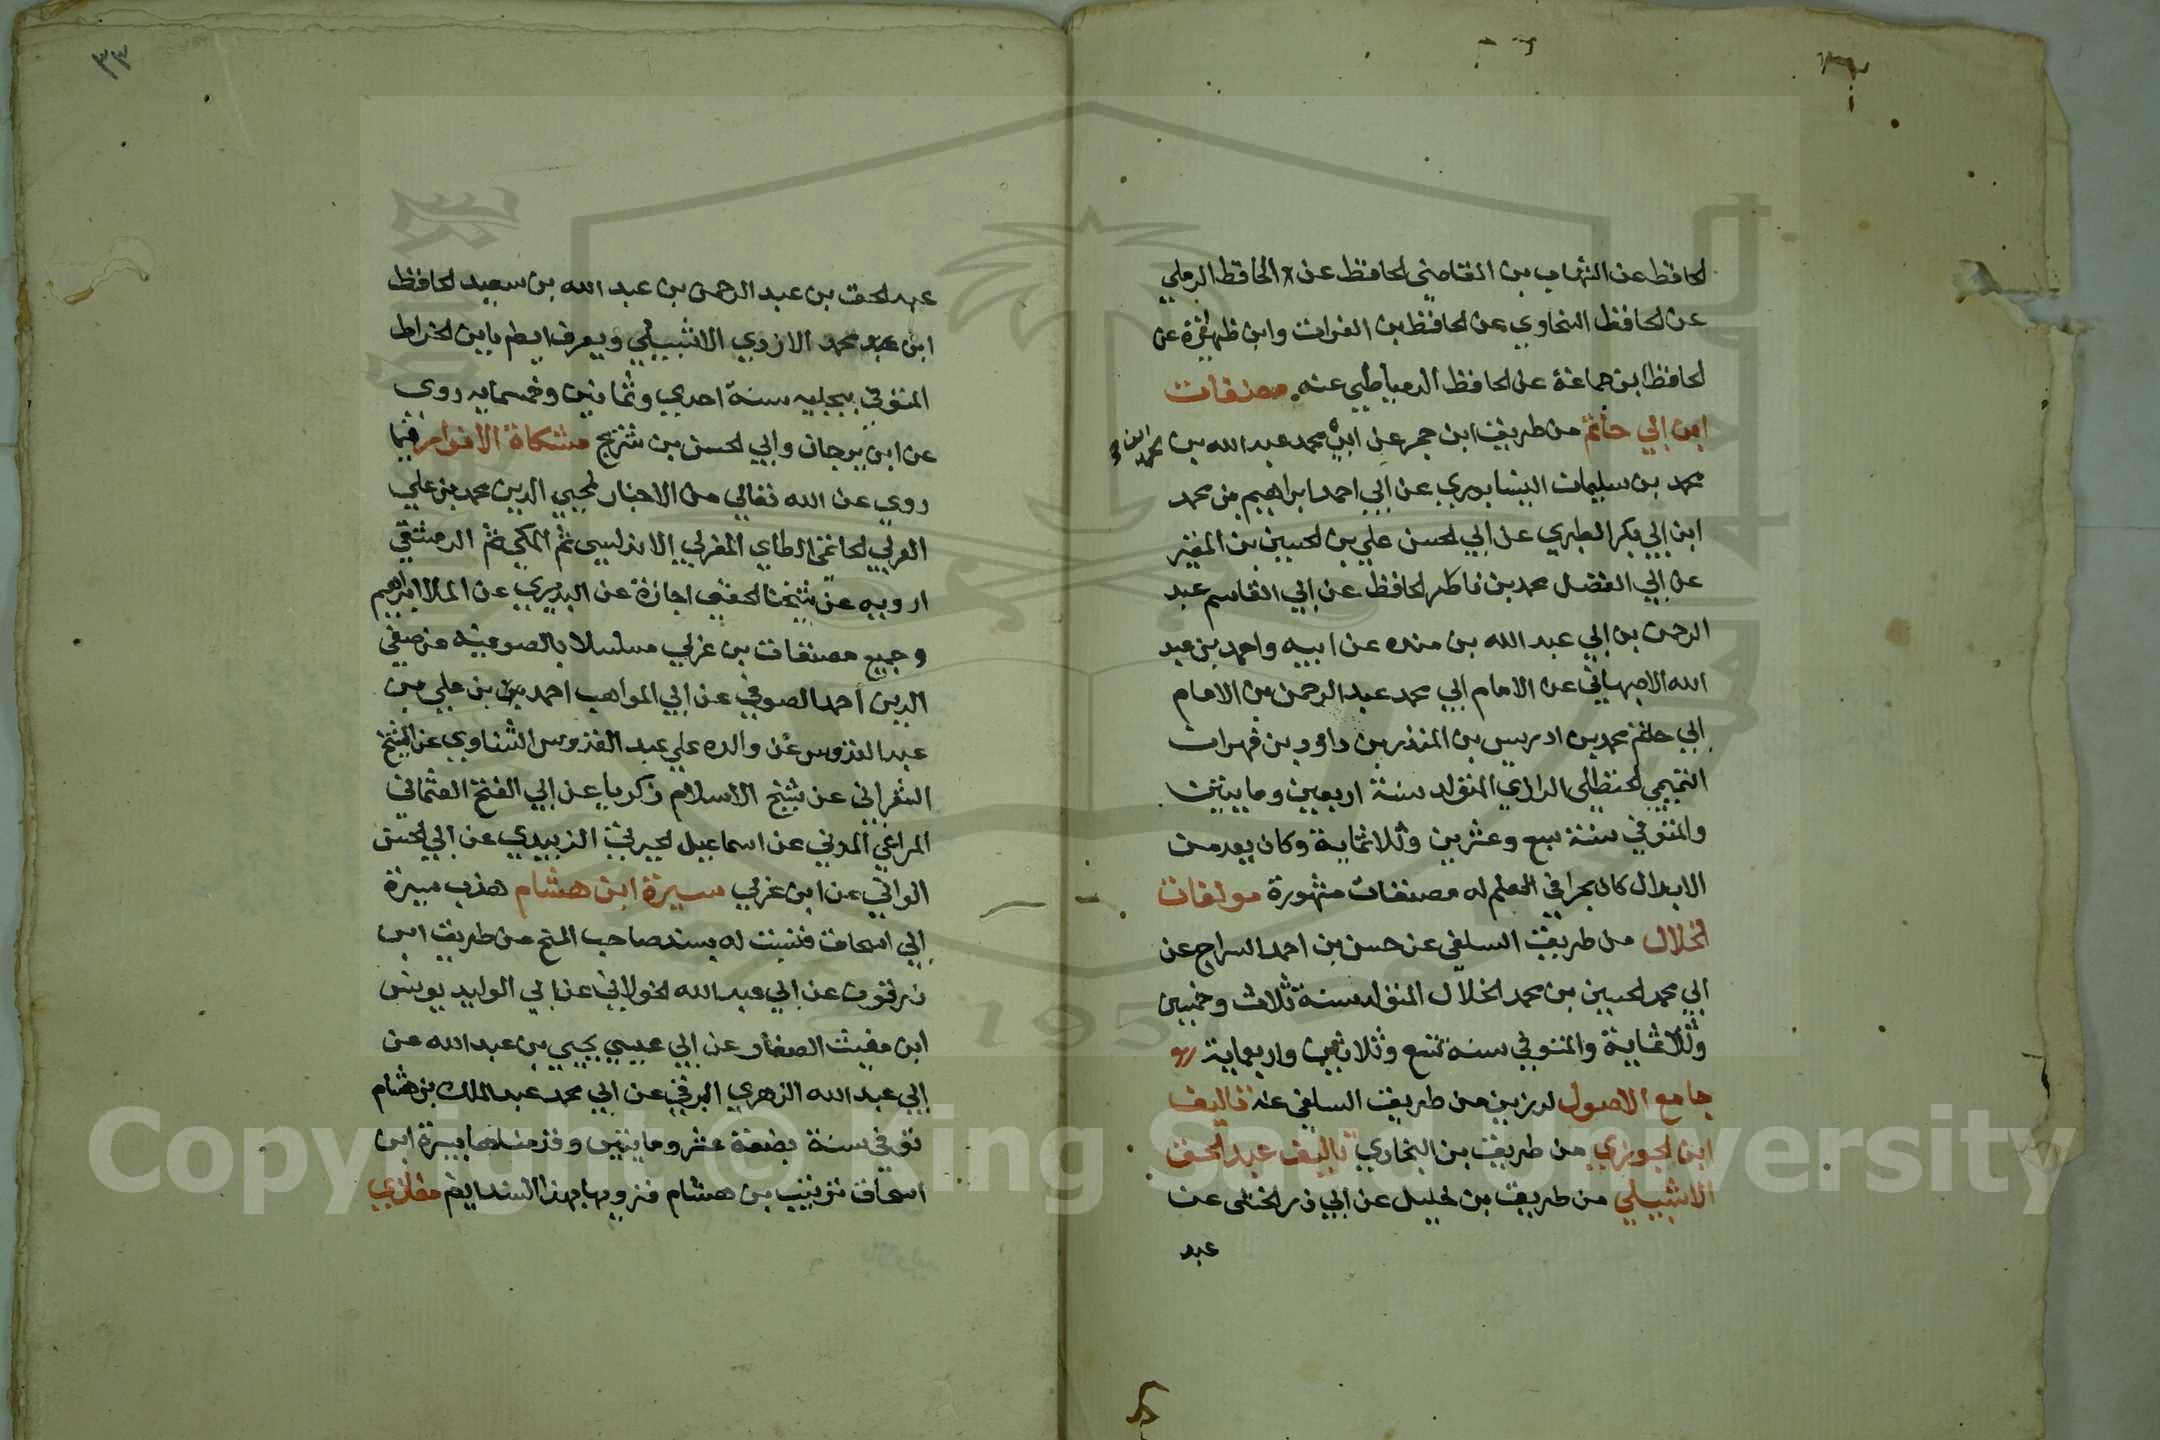 الحافظ عن الشهاب بن القاضي الحافظ عن الحافظ الرملي
عن الحافظ السخاوي عن الحافظ بن الفرات وابن ظهيرة عن
الحافظ ابن جماعة عن الحافظ الدمياطي عنه مصنفات
ابن ابي حاتم من طريق ابن حجر عن ابي محمد عبد الله بن
محمد بن سليمان النيسابوري عن ابي احمد ابراهيم بن محمد
ابن ابي بكر الطبري عن ابي الحسن علي بن الحسين بن المقير
عن ابي الفضل محمد بن ناصر الحافظ عن ابي القاسم عبد
الرحمن بن ابي عبد الله بن منده عن ابيه واحمد بن عبد
الله الاصبهاني عن الامام ابي محمد عبد الرحمن بن الامام
ابي حاتم محمد بن ادريس بن المنذر بن داوود بن مهران
التميمي الحنظلي الرازي المتولد سنة اربعين ومايتين
والمتوفي سنة سبع وعشرين وثلاثماية وكان يعد من
الابدال كان بحرا في العلم له مصنفات مشهورة مولفات
الخلال من طريق السلفي عن حسن بن احمد السراج عن
ابي محمد الحسين بن محمد الخلال المتولد سنة ثلاث وخمسين
وثلاثماية والمتوفي سنة تسع وثلاثين واربعماية
جامع الاصول لرزين من طريق السلفي عنه تاليف
ابن الجوزي من طريق بن البخاري تاليف عبد الحق
الاشبيلي من طريق بن خليل عن ابي ذر الخشني عن
عبد
٣٣
عبد الحق بن عبد الرحمن بن عبد الله بن سعيد الحافظ
ابن محمد الازدي الاشبيلي ويعرف ايضم بابن الخراط
المتوفي ببجايه سنة احدي وثمانين وخمسمايه روى
عن ابن برجان وابي الحسن بن شريح مشكاة الانوار فيما
روي عن الله تعالي من الاخبار لمحيي الدين محمد بن علي
العربي الحاتمي الطاي المغربي الاندلسي ثم المكي ثم الدمشقي
ارويه عن شيخنا الحفني اجازة عن البديري عن الملا ابراهيم
وجميع مصنفات بن عربي مسلسلا بالصوفية عن صفي
الدين احمد الصوفي عن ابي المواهب احمد بن علي بن
عبد القدوس عن والده علي عبد القدوس الشناوي عن الشيخ
الشعراني عن شيخ الاسلام زكريا عن ابي الفتح العثماني
المراغي المدني عن اسماعيل الجبرتي الزبيدي عن ابي الحسن
الواني عن ابن عربي سيرة ابن هشام هذب سيرة
ابي اسحاق فنسبت له بسند صاحب المنح من طريق ابن
زرقون عن ابي عبد الله الخولاني عن ابي الوليد يونس
ابن مغيث الصفار عن ابي عيسي يحيي بن عبد الله عن
ابي عبد الله الزهري البرقي عن ابي محمد عبد الملك بن هشام
توفي سنة بضعة عشر ومايتين وقد مناها سيرة ابن
اسحاق تهذيب بن هشام فنرويها بهذا السند ايضم مغازي